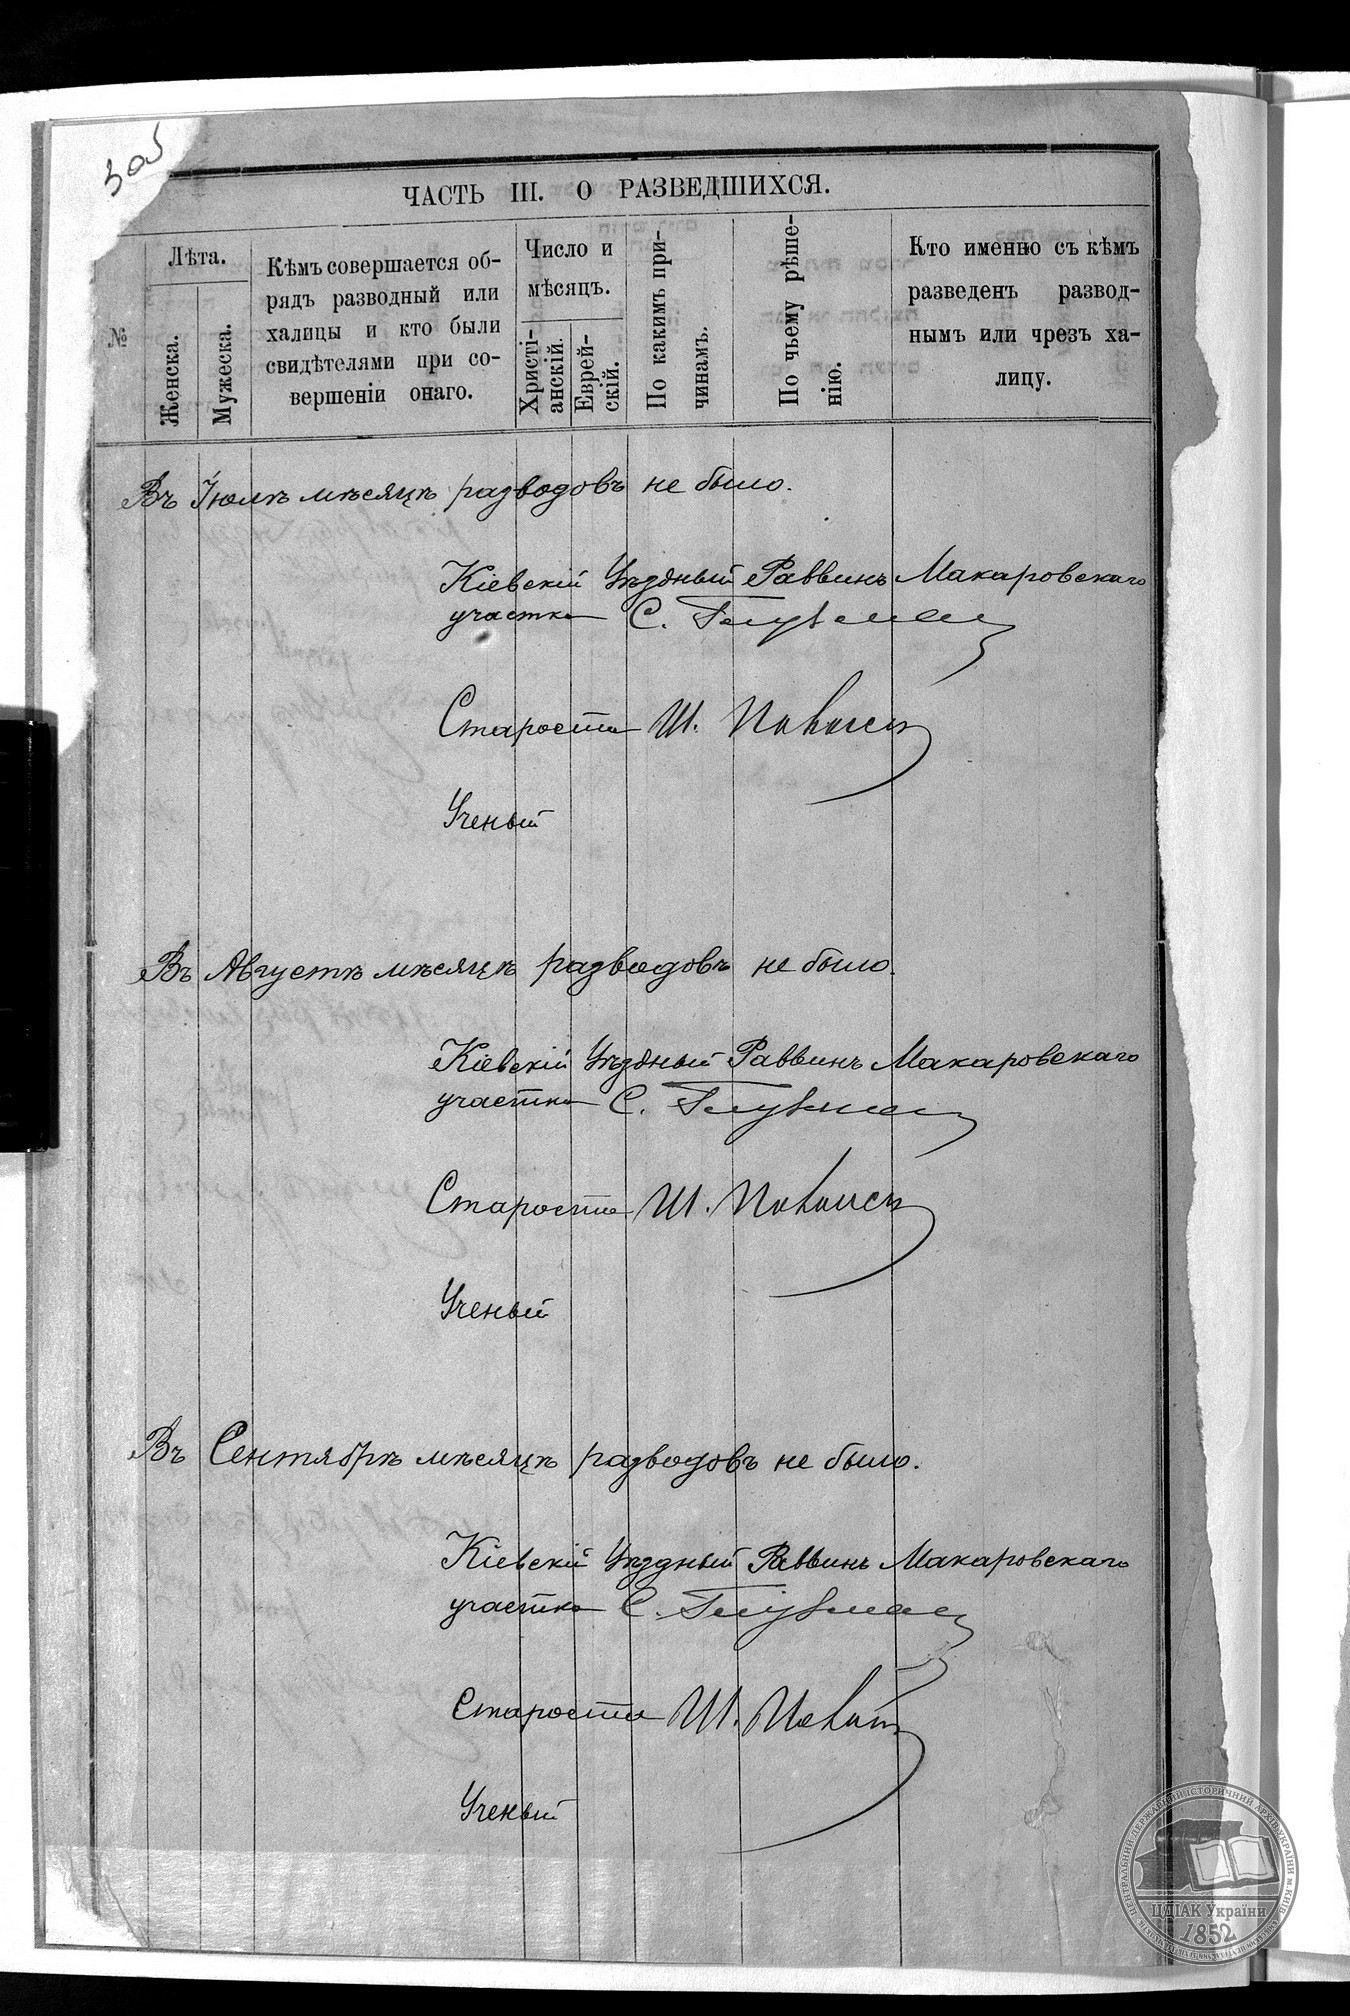 305
ЧАСТЬ III. О РАЗВЕДШИХСЯ.
№
Лѣта.
Женска.
Мужеска.
Кѣмъ совершается об-
рядъ разводный или
халицы и кто были
свидѣтелями при со-
вершеніи онаго.
Число и
мѣсяцъ.
Христі-
анскій.
Еврей-
скій.
По какимъ при-
чинамъ.
По чьему рѣше-
нію.
Кто именно съ кѣмъ
разведенъ развод-
нымъ или чрезъ ха-
лицу.
Въ Іюлѣ мѣсяцѣ разводовъ не было.
Кіевскій Уѣздный Раввинъ Макаровскаго
участка С.
Староста Ш.
Ученый
Въ Августѣ мѣсяцѣ разводовъ не было.
Кіевскій Уѣздный Раввинъ Макаровскаго
участка С.
Староста Ш.
Ученый
Въ Сентябрѣ мѣсяцѣ разводовъ не было.
Кіевскій Уѣздный Раввинъ Макаровскаго
участка С.
Староста Ш.
Ученый
ЦЕНТРАЛЬНИЙ ДЕРЖАВНИЙ ІСТОРИЧНИЙ АРХІВ УКРАЇНИ М.КИЇВ
ЦДІАК України
1852